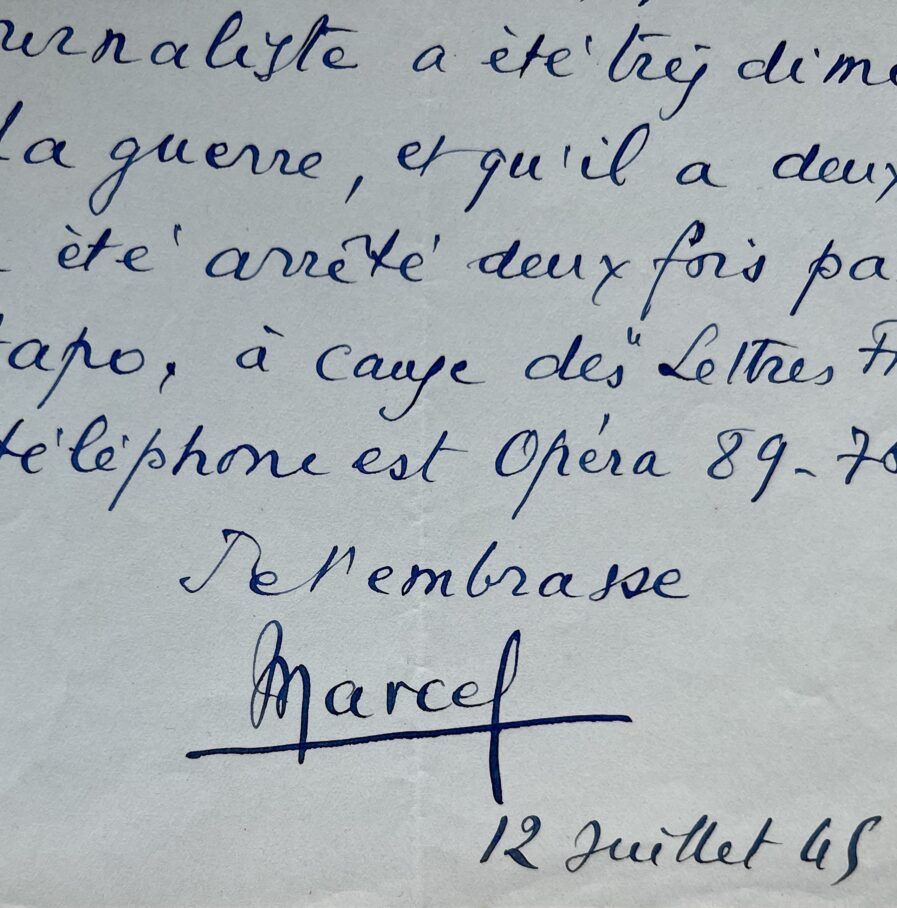 urnaliste a été très dime
la guerre, et qu'il a deux
été arrêté deux fois pa
tapo, à cause des "Lettres Fr
téléphone est Opéra 89-70
Je t'embrasse
Marcel
12 Juillet 45